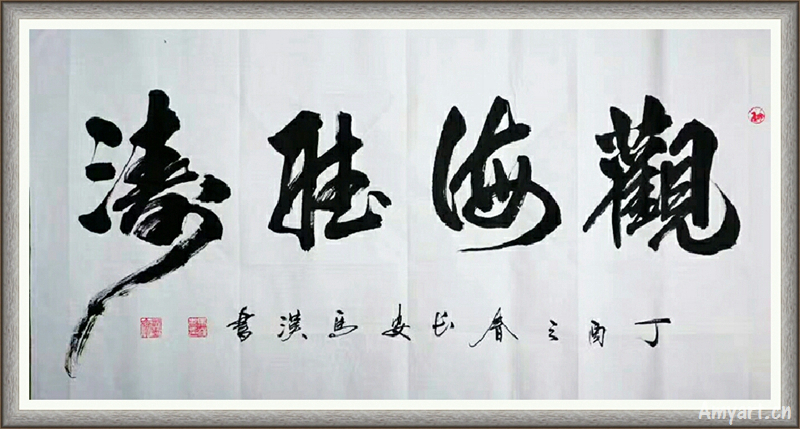 觀海聽濤
丁酉之春長安馬漢書
Amyart.cn